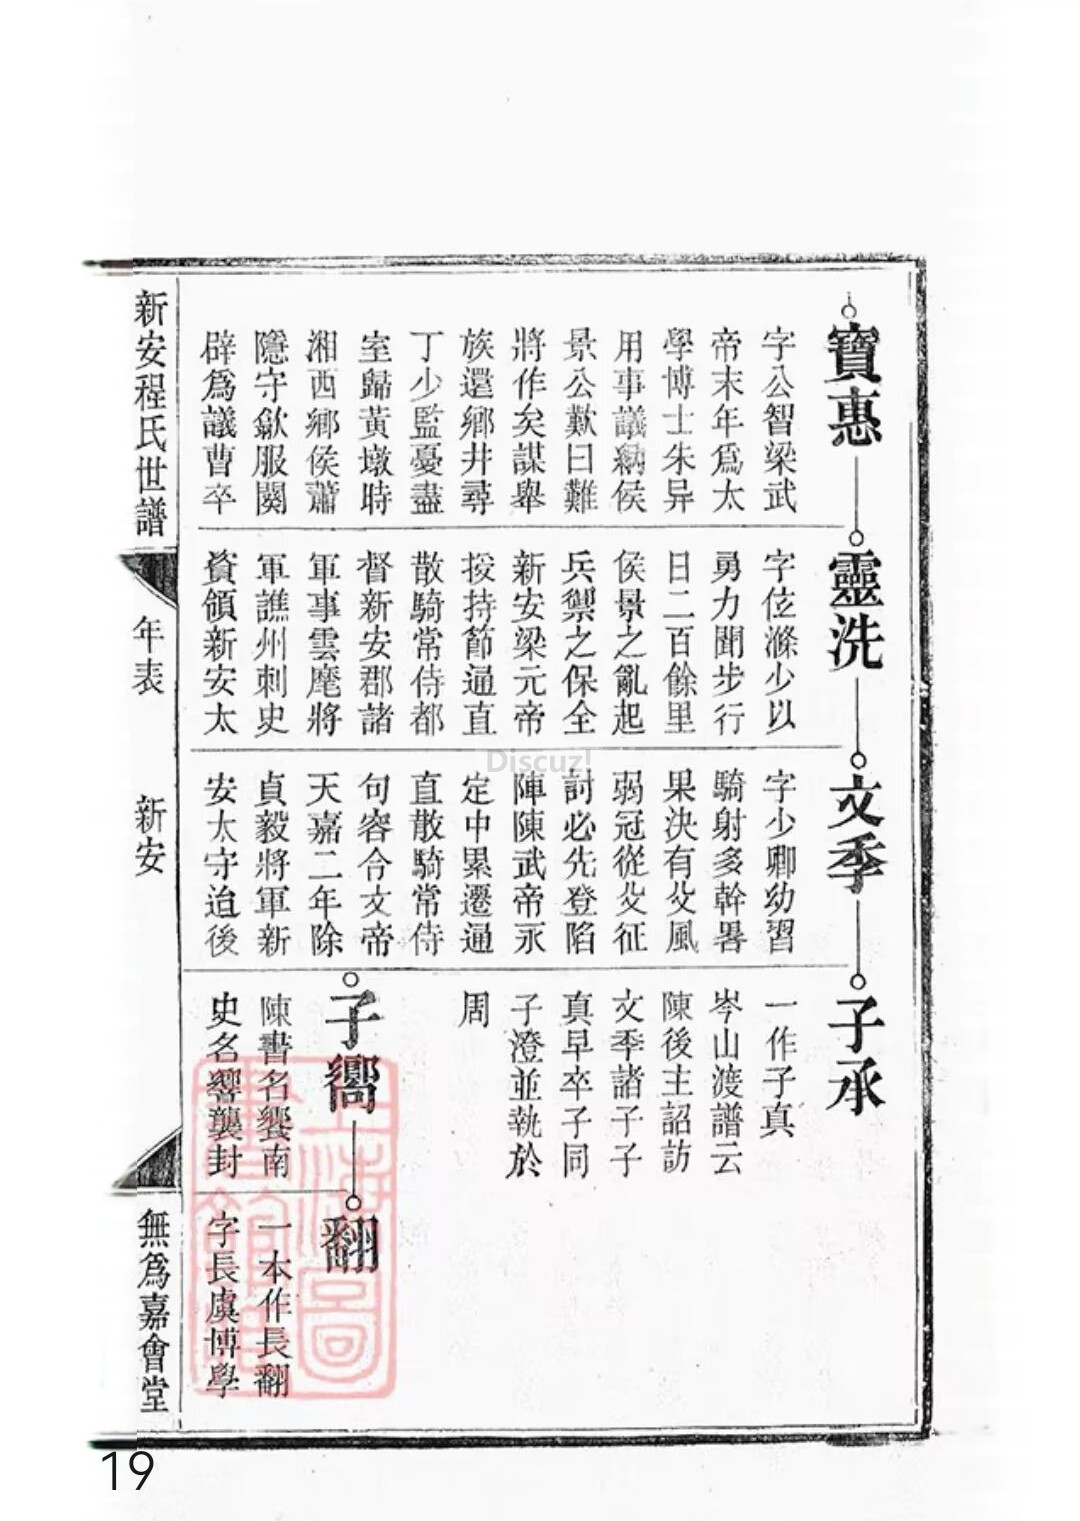 寶惠
字公智梁武
帝末年爲太
學博士朱异
用事議納侯
景公歎曰難
將作矣謀舉
族還鄉井尋
丁少監憂盡
室歸黃墩時
湘西鄉侯蕭
隱守歙服闋
辟爲議曹卒
靈洗
字位滌少以
勇力聞步行
日二百餘里
侯景之亂起
兵禦之保全
新安梁元帝
授持節通直
散騎常侍都
督新安郡諸
軍事雲麾將
軍譙州刺史
資領新安太
文季
字少卿幼習
騎射多幹畧
果決有父風
弱冠從父征
討必先登陷
陣陳武帝永
定中累遷通
直散騎常侍
句容令文帝
天嘉二年除
貞毅將軍新
安太守追後
子承
一作子真
岑山渡譜云
陳後主詔訪
文季諸子子
真早卒子同
子澄並執於
周
子嚮
陳書名饗南
史名響襲封
翻
一本作長翻
字長虞博學
新安程氏世譜
年表
新安
無爲嘉會堂
上海圖
書館藏
Discuz!
19